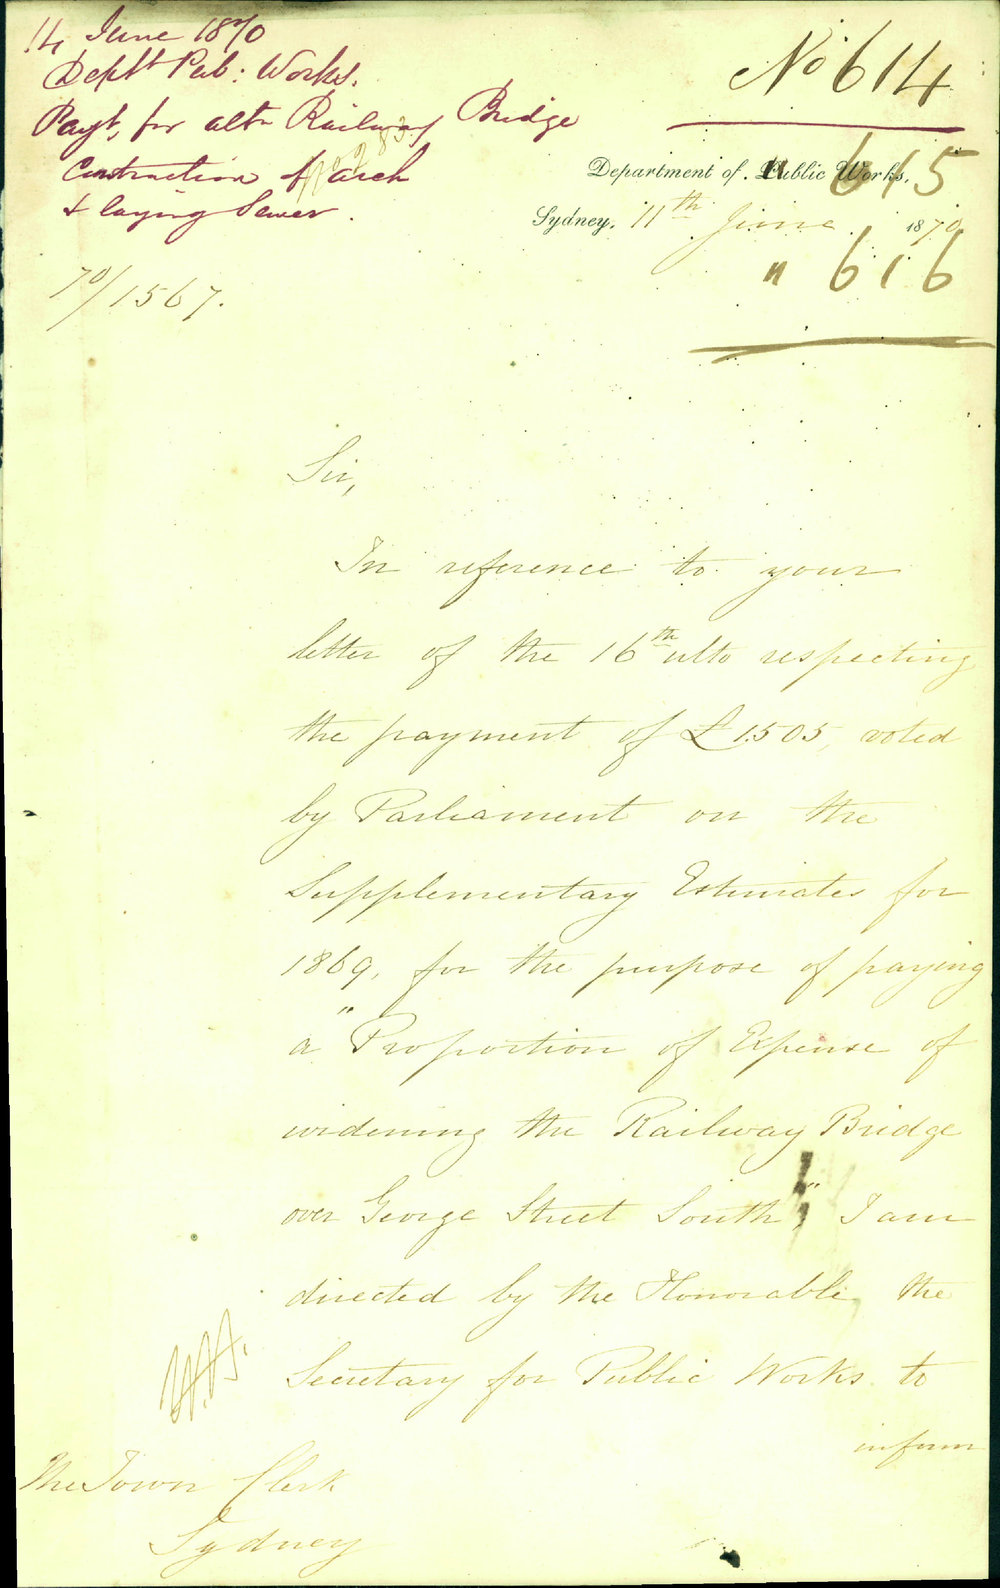 14 June 1870
Deptt Pub: Works.
Payt, for altn Railway Bridge
Construction of arch
& laying Sewer.
70/1567.
No 614
" 615
" 616
Department of Public Works,
Sydney, 11th June 1870
Sir,
In reference to your
letter of the 16th ulto respecting
the payment of £1505, voted
by Parliament on the
Supplementary Estimates for
1869, for the purpose of paying
a "Proportion of Expense of
widening the Railway Bridge
over George Street South," I am
directed by the Honorable the
Secretary for Public Works to
inform
The Town Clerk
Sydney